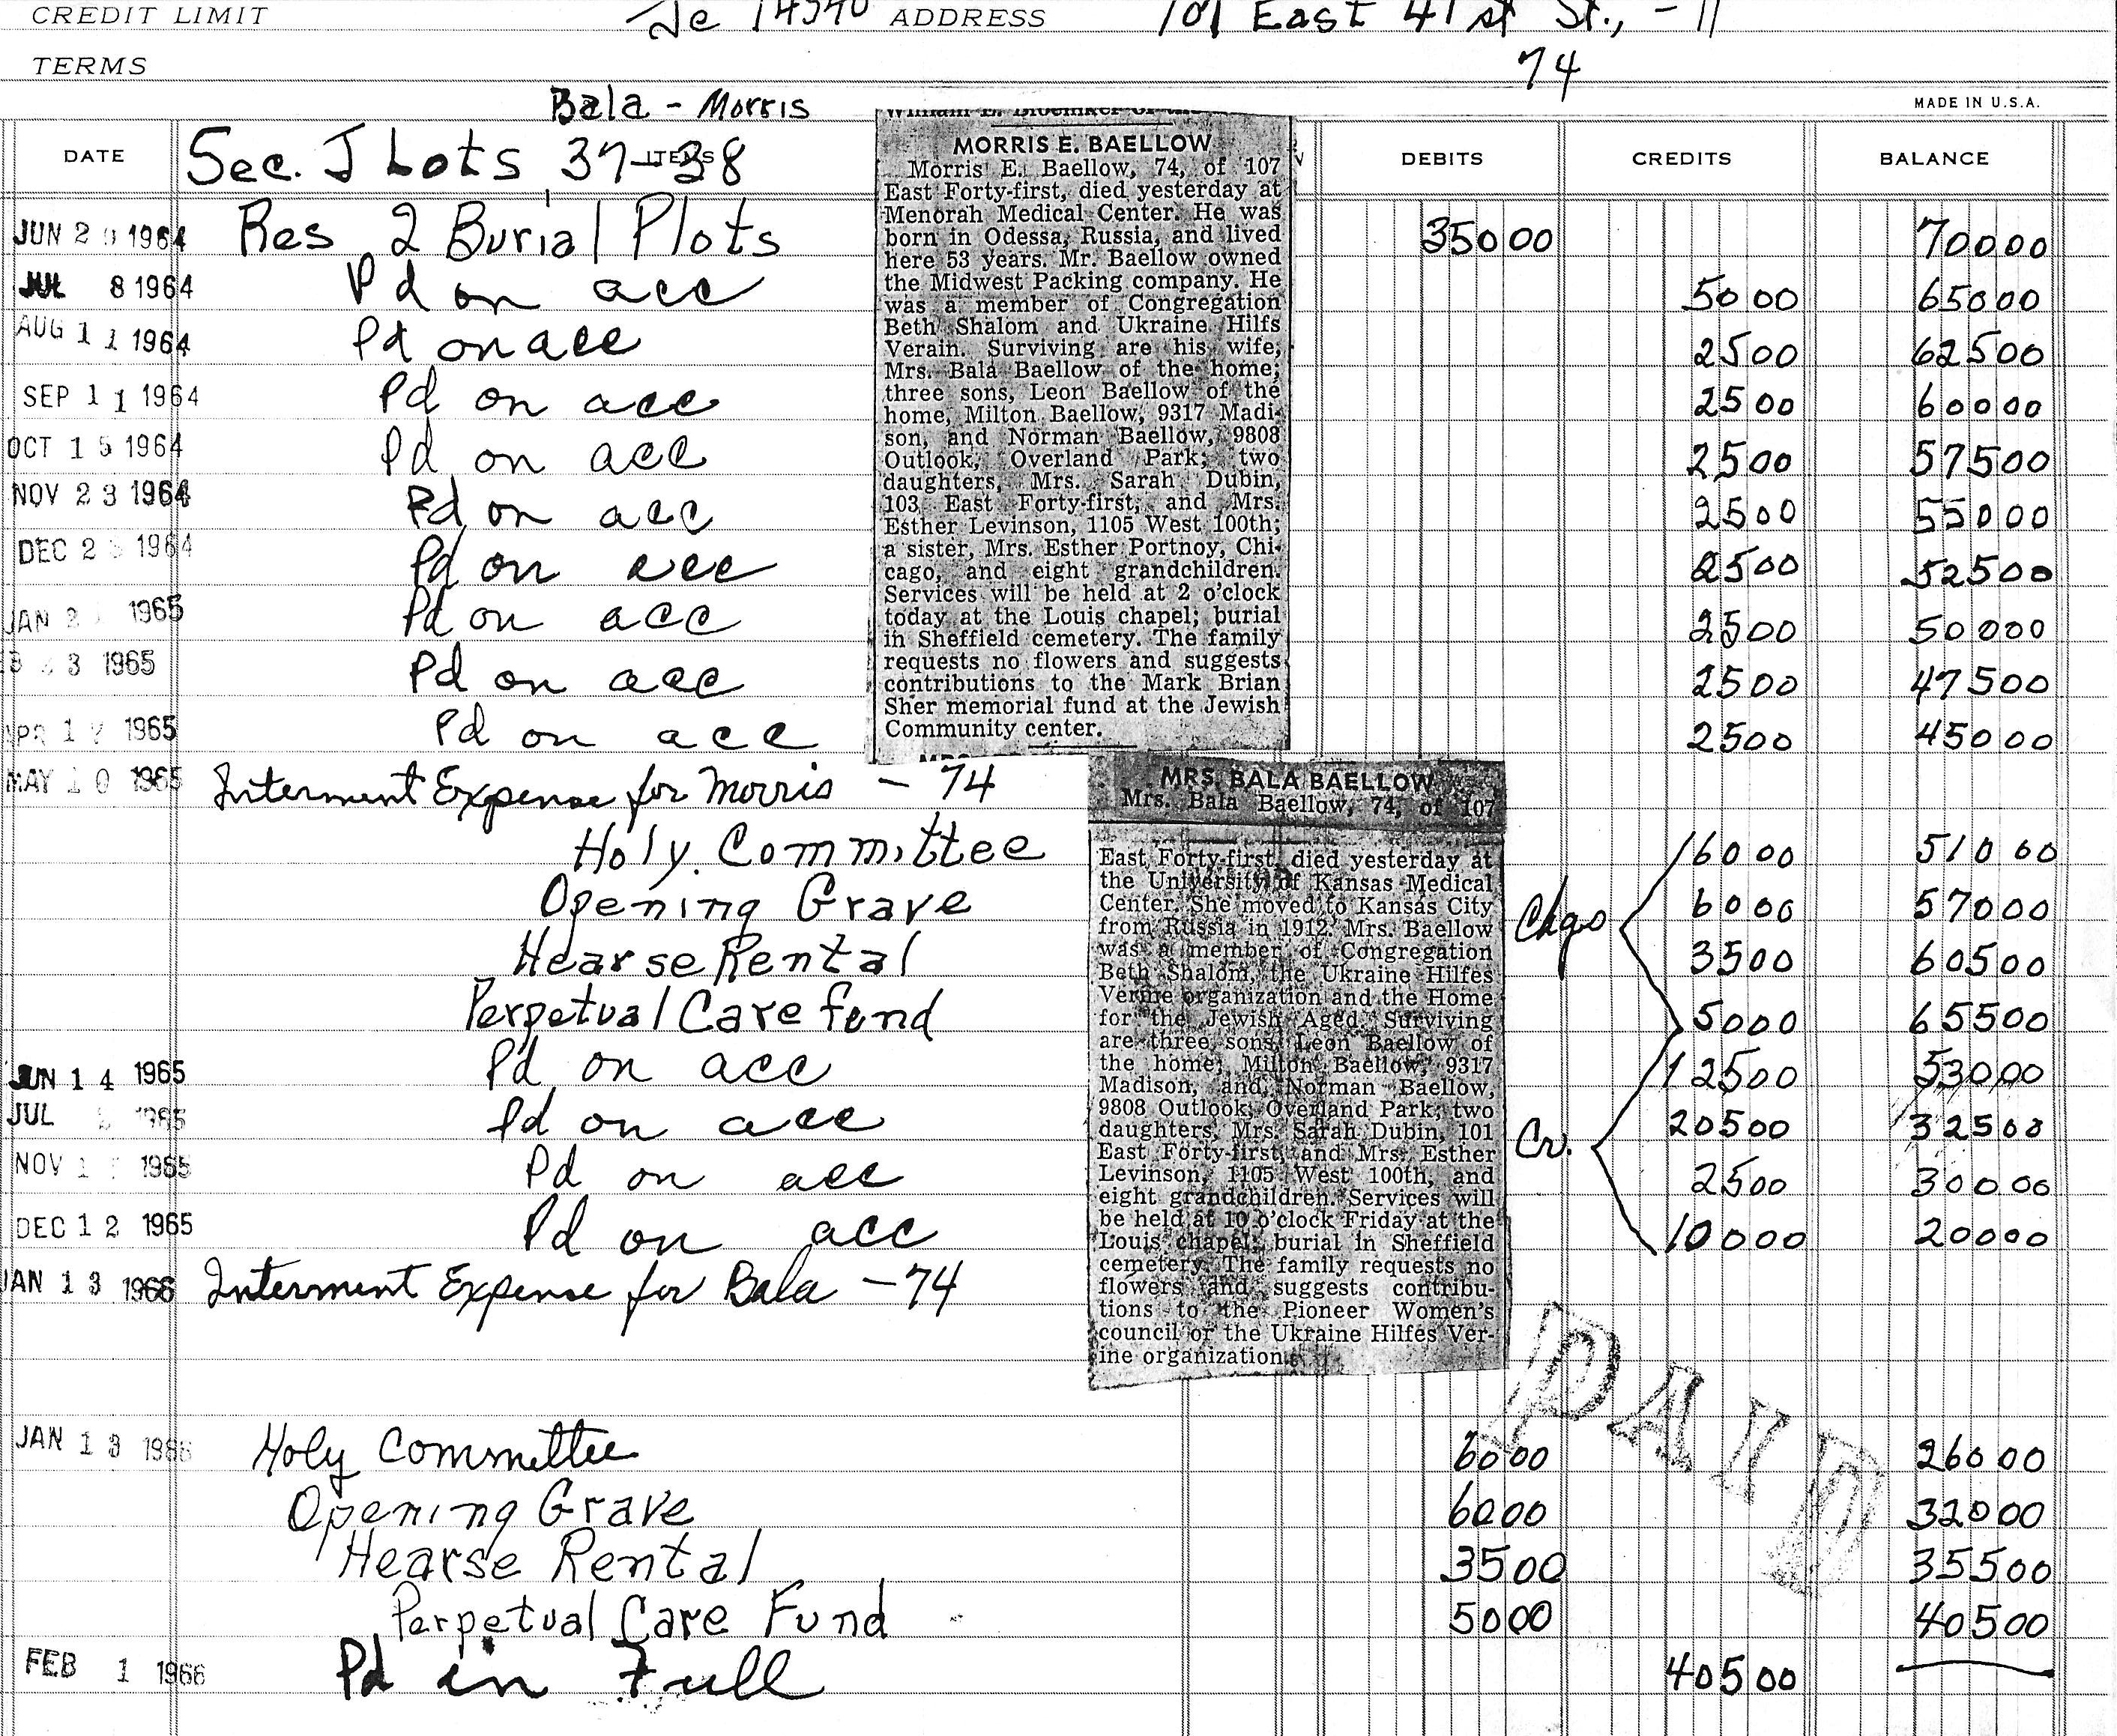 CREDIT LIMIT ADDRESS East 41 st St., - 11
TERMS 74
Bala - Morris MADE IN U.S.A.
DATE Sec. J Lots 37-38 ITEMS DEBITS CREDITS BALANCE
JUN 2 1964 Res 2 Burial Plots 35000 70000
JUL 8 1964 Pd on acc 5000 65000
AUG 11 1964 Pd on acc 2500 62500
SEP 11 1964 Pd on acc 2500 60000
OCT 15 1964 Pd on acc 2500 57500
NOV 23 1964 Pd on acc 2500 55000
DEC 2 1964 Pd on acc 2500 52500
JAN 2 1965 Pd on acc 2500 50000
3 1965 Pd on acc 2500 47500
1965 Pd on acc 2500 45000
MAY 10 1965 Interment Expense for Morris - 74
Holy Committee Chgs 6000 51000
Opening Grave 6000 57000
Hearse Rental 3500 60500
Perpetual Care fund 5000 65500
JUN 14 1965 Pd on acc Cr. 12500 53000
JUL 1965 Pd on acc 20500 32500
NOV 1 1965 Pd on acc 2500 30000
DEC 12 1965 Pd on acc 10000 20000
JAN 13 1966 Interment Expense for Bala - 74
PAID
JAN 13 1966 Holy Committee 6000 26000
Opening Grave 6000 32000
Hearse Rental 3500 35500
Perpetual Care Fund 5000 40500
FEB 1 1966 Pd in Full 40500
MORRIS E. BAELLOW
Morris E. Baellow, 74, of 107
East Forty-first, died yesterday at
Menorah Medical Center. He was
born in Odessa, Russia, and lived
here 53 years. Mr. Baellow owned
the Midwest Packing company. He
was a member of Congregation
Beth Shalom and Ukraine Hilfs
Verain. Surviving are his wife,
Mrs. Bala Baellow of the home;
three sons, Leon Baellow of the
home, Milton Baellow, 9317 Madi-
son, and Norman Baellow, 9808
Outlook, Overland Park; two
daughters, Mrs. Sarah Dubin,
103 East Forty-first, and Mrs.
Esther Levinson, 1105 West 100th;
a sister, Mrs. Esther Portnoy, Chi-
cago, and eight grandchildren.
Services will be held at 2 o'clock
today at the Louis chapel; burial
in Sheffield cemetery. The family
requests no flowers and suggests
contributions to the Mark Brian
Sher memorial fund at the Jewish
Community center.
MRS. BALA BAELLOW
Mrs. Bala Baellow, 74, of 107
East Forty-first, died yesterday at
the University of Kansas Medical
Center. She moved to Kansas City
from Russia in 1912. Mrs. Baellow
was a member of Congregation
Beth Shalom, the Ukraine Hilfes
Verine organization and the Home
for the Jewish Aged. Surviving
are three sons, Leon Baellow of
the home, Milton Baellow, 9317
Madison, and Norman Baellow,
9808 Outlook, Overland Park; two
daughters, Mrs. Sarah Dubin, 101
East Forty-first, and Mrs. Esther
Levinson, 1105 West 100th, and
eight grandchildren. Services will
be held at 10 o'clock Friday at the
Louis chapel; burial in Sheffield
cemetery. The family requests no
flowers and suggests contribu-
tions to the Pioneer Women's
council or the Ukraine Hilfes Ver-
ine organization.